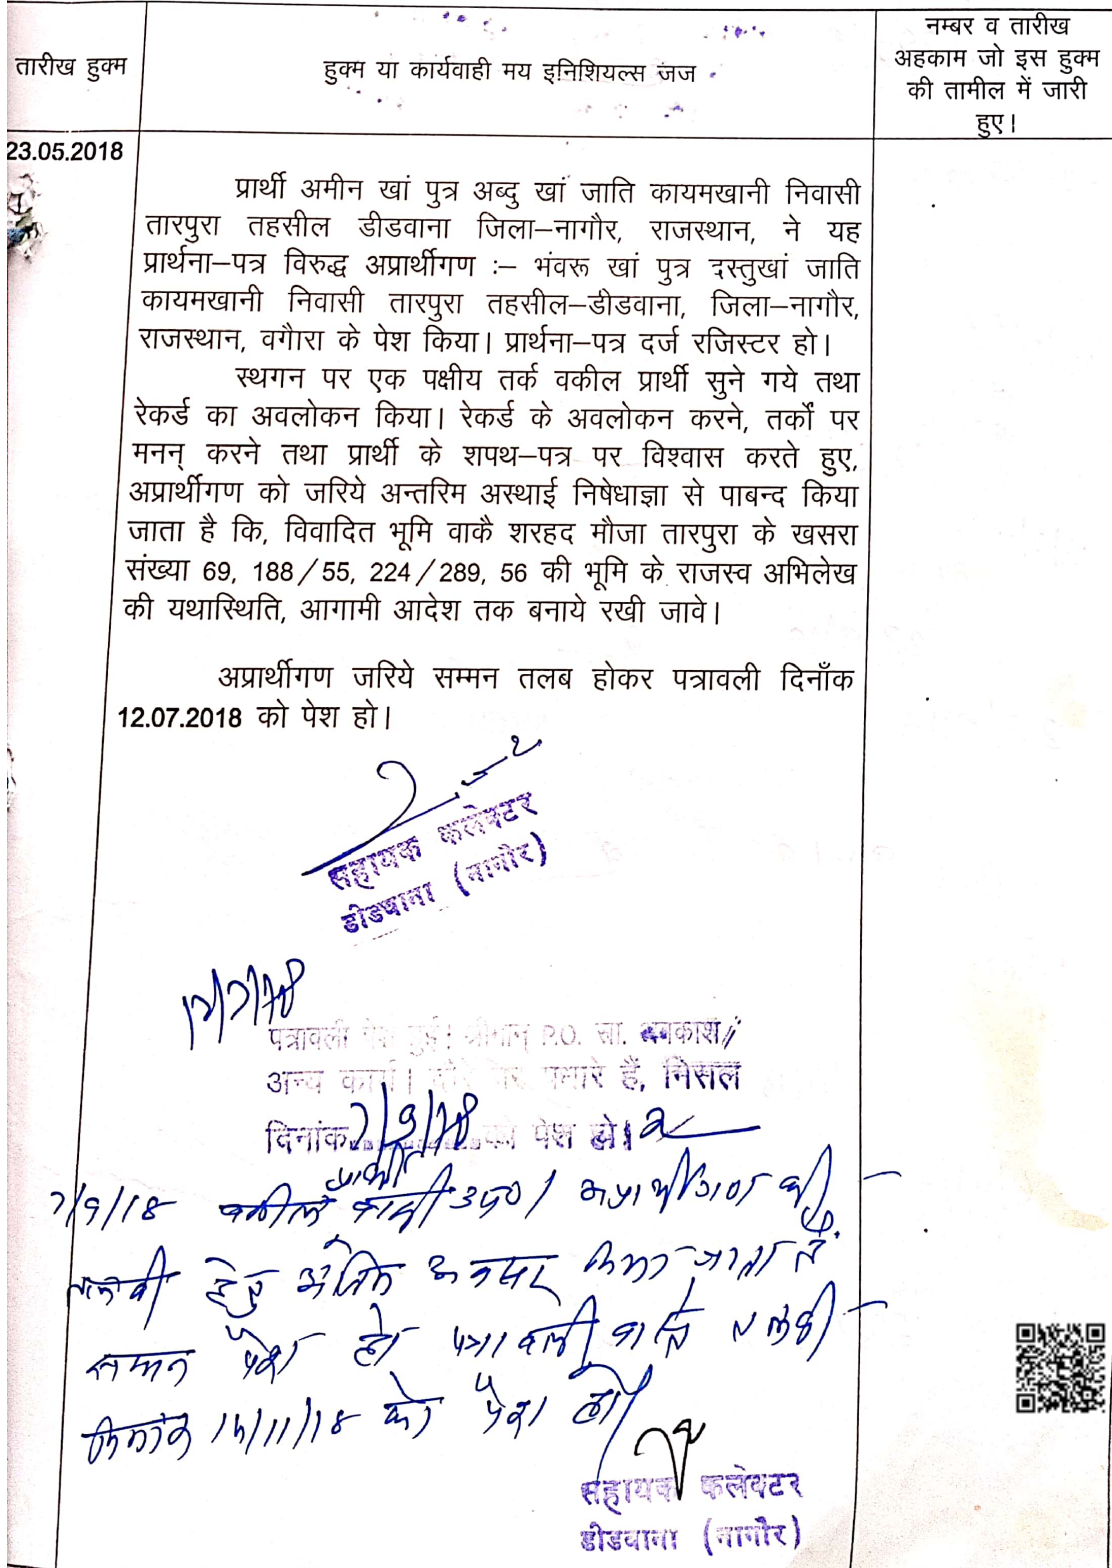 तारीख हुक्म
हुक्म या कार्यवाही मय इनिशियल्स जज
नम्बर व तारीख
अहकाम जो इस हुक्म
की तामील में जारी
हुए।
23.05.2018
प्रार्थी अमीन खां पुत्र अब्दु खां जाति कायमखानी निवासी
तारपुरा तहसील डीडवाना जिला–नागौर, राजस्थान, ने यह
प्रार्थना–पत्र विरुद्ध अप्रार्थीगण :– भंवरू खां पुत्र दस्तुखां जाति
कायमखानी निवासी तारपुरा तहसील–डीडवाना, जिला–नागौर,
राजस्थान, वगैारा के पेश किया। प्रार्थना–पत्र दर्ज रजिस्टर हो।
स्थगन पर एक पक्षीय तर्क वकील प्रार्थी सुने गये तथा
रेकर्ड का अवलोकन किया। रेकर्ड के अवलोकन करने, तर्कों पर
मनन् करने तथा प्रार्थी के शपथ–पत्र पर विश्वास करते हुए,
अप्रार्थीगण को जरिये अन्तरिम अस्थाई निषेधाज्ञा से पाबन्द किया
जाता है कि, विवादित भूमि वाकै शरहद मौजा तारपुरा के खसरा
संख्या 69, 188/55, 224/289, 56 की भूमि के राजस्व अभिलेख
की यथास्थिति, आगामी आदेश तक बनाये रखी जावे।
अप्रार्थीगण जरिये सम्मन तलब होकर पत्रावली दिनाँक
12.07.2018 को पेश हो।
सहायक कलेक्टर
डीडवाना (नागौर)
12/7/18
पत्रावली पेश हुई। श्रीमान् P.O. सा. अवकाश/
अन्य कार्य। पधारे हैं, मिसल
दिनांक 7/9/18 को पेश हो।
7/9/18 वकील प्रार्थी उप0। अप्रार्थीगण की
तलबी हेतु अंतिम अवसर दिया जाता है
सम्मन पेश हो पत्रावली वास्ते तलबी
दिनांक 15/11/18 को पेश हो।
सहायक कलेक्टर
डीडवाना (नागौर)